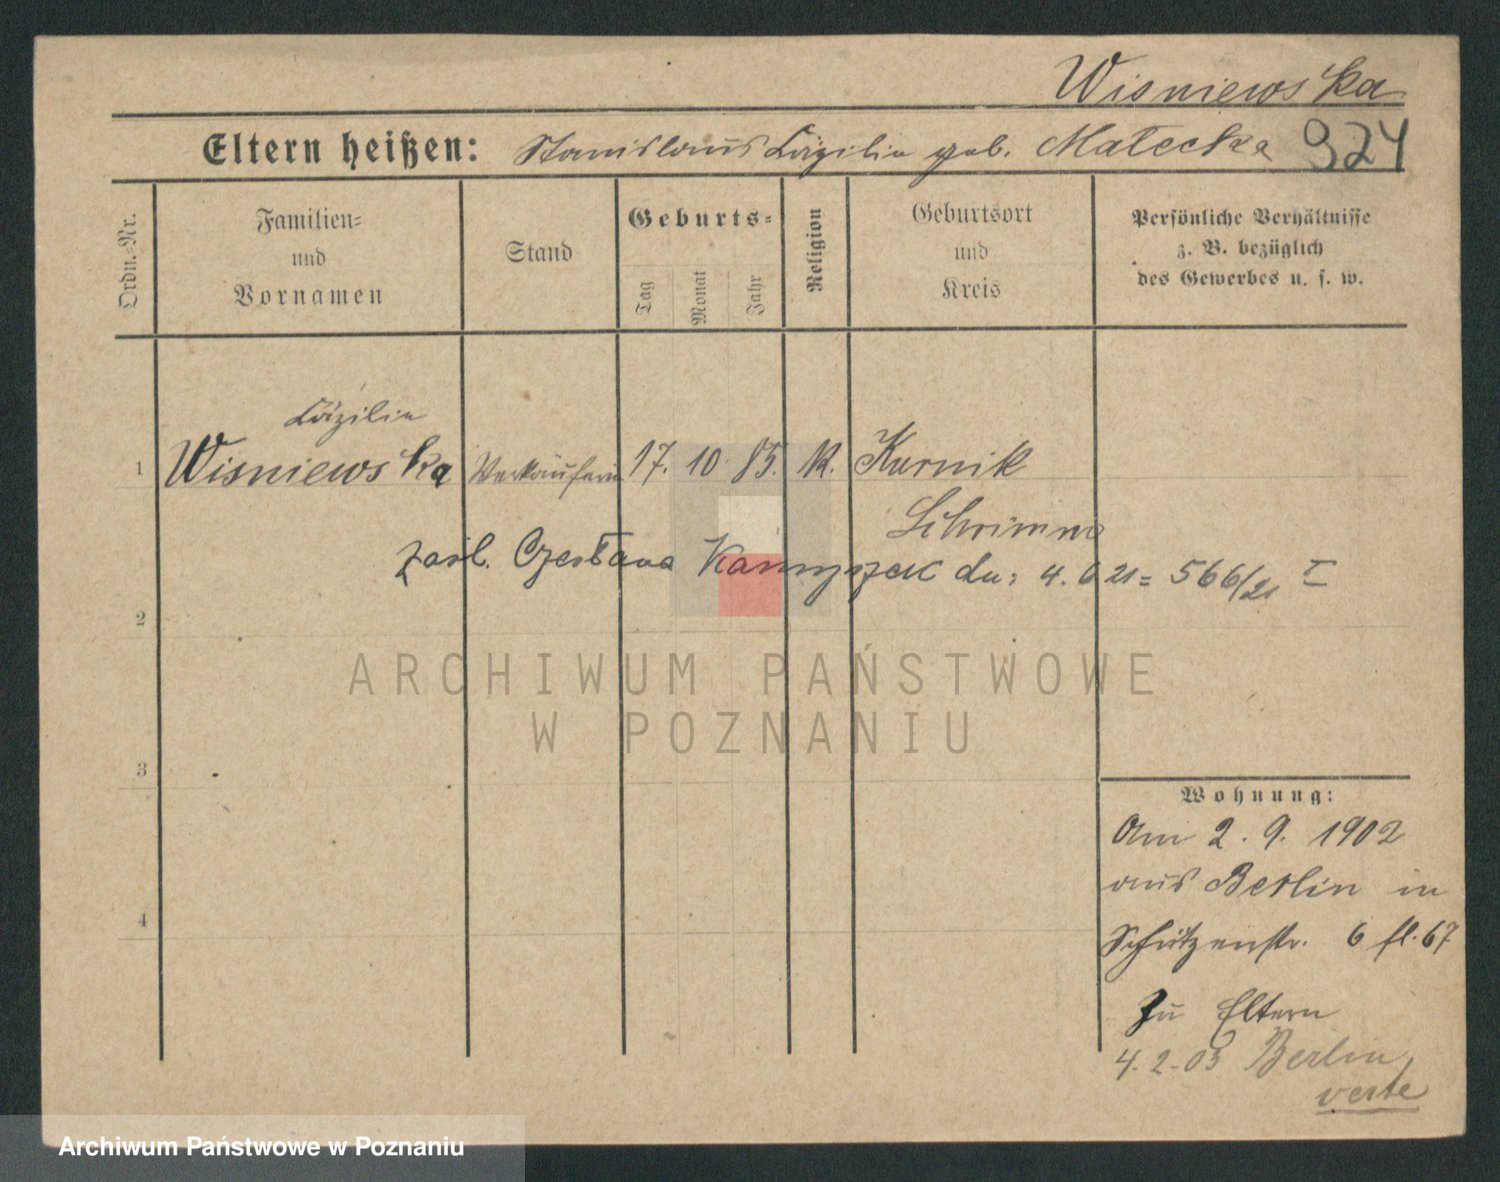 Wisniewska
Eltern heißen: Stanislaus Cäzilie geb. Małecka 924
Ordn.-Nr.
Familien- und Vornamen
Stand
Geburts-
Tag
Monat
Jahr
Religion
Geburtsort und Kreis
Persönliche Verhältnisse
z. B. bezüglich
des Gewerbes u. s. w.
Cäzilie
1 Wisniewska Verkäuferin 17. 10. 85. K. Kurnik
Schrimm
zaśl. Czesława dn: 4. 6 21 = 566/21 I
2
ARCHIWUM PAŃSTWOWE
W POZNANIU
3
4
Wohnung:
Am 2. 9. 1902
aus Berlin in
Schützenstr. 6 fl. 67
Zu Eltern
4. 2. 03 Berlin
verte
Archiwum Państwowe w Poznaniu